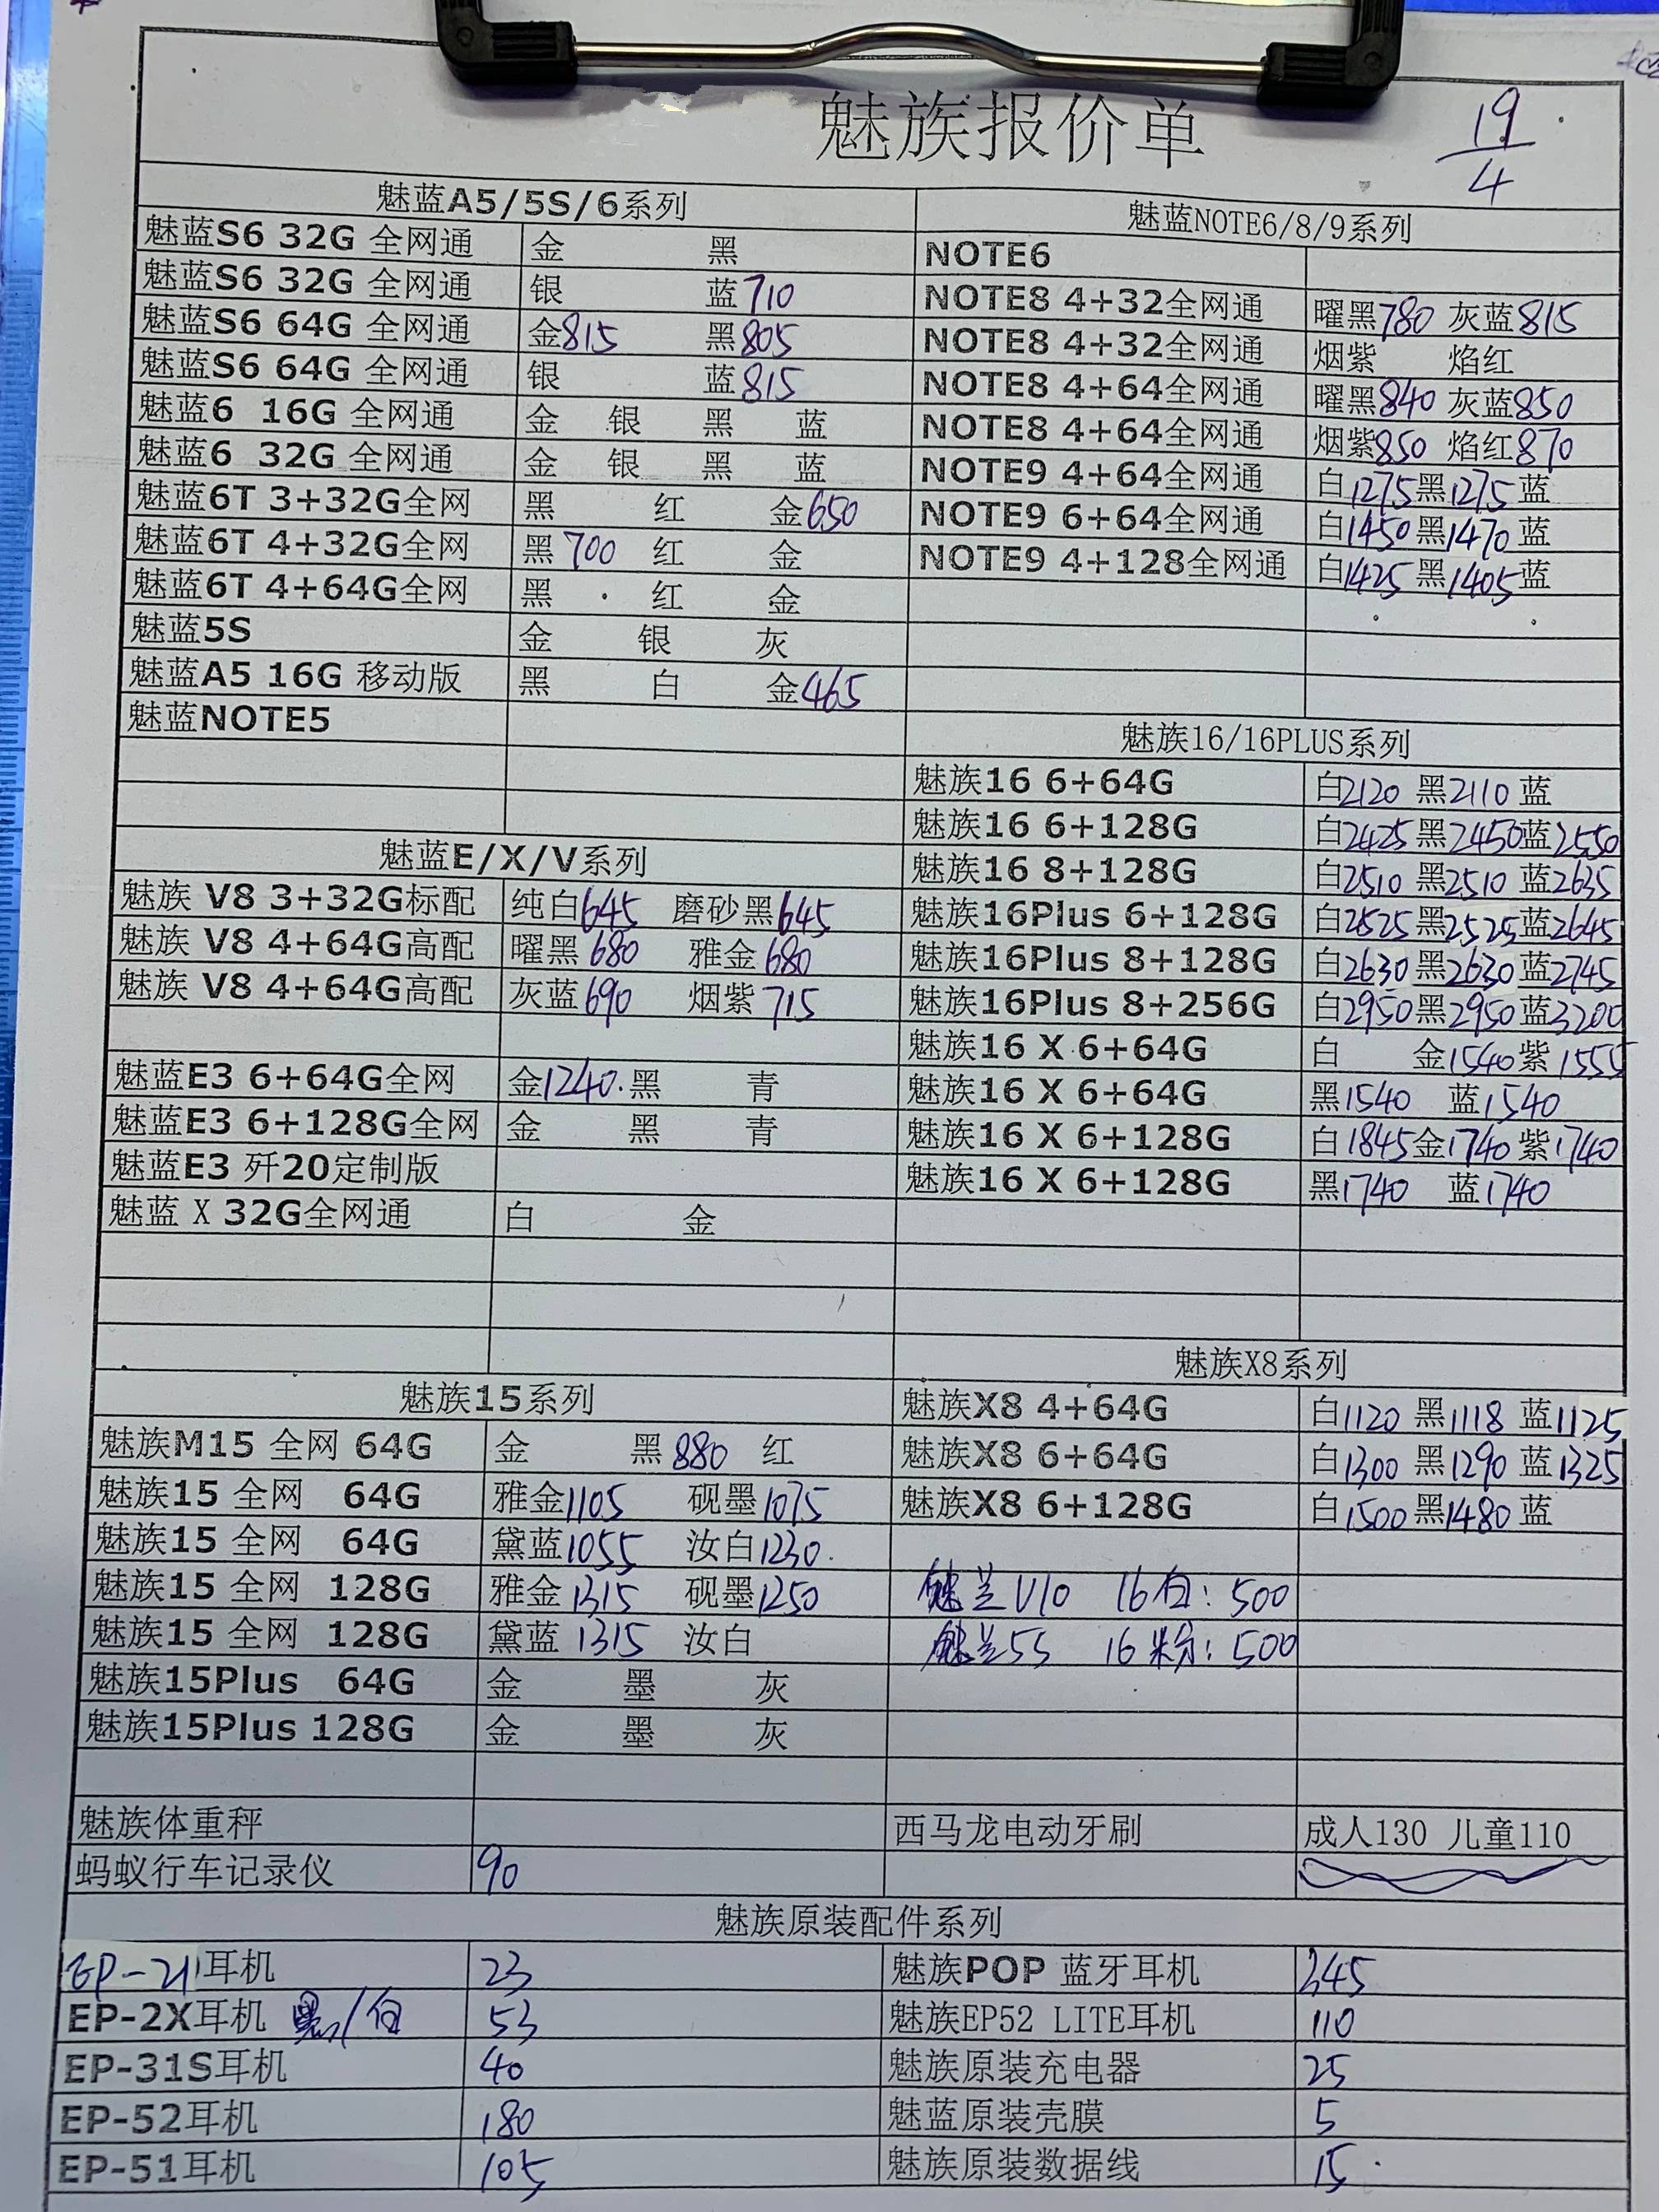 魅族报价单
19/4
魅蓝A5/5S/6系列
魅蓝S6 32G 全网通 金 黑
魅蓝S6 32G 全网通 银 蓝710
魅蓝S6 64G 全网通 金815 黑805
魅蓝S6 64G 全网通 银 蓝815
魅蓝6 16G 全网通 金 银 黑 蓝
魅蓝6 32G 全网通 金 银 黑 蓝
魅蓝6T 3+32G全网 黑 红 金650
魅蓝6T 4+32G全网 黑700 红 金
魅蓝6T 4+64G全网 黑 红 金
魅蓝5S 金 银 灰
魅蓝A5 16G 移动版 黑 白 金465
魅蓝NOTE5
魅蓝NOTE6/8/9系列
NOTE6
NOTE8 4+32全网通 曜黑780 灰蓝815
NOTE8 4+32全网通 烟紫 焰红
NOTE8 4+64全网通 曜黑840 灰蓝850
NOTE8 4+64全网通 烟紫850 焰红870
NOTE9 4+64全网通 白1275 黑1275 蓝
NOTE9 6+64全网通 白1450 黑1470 蓝
NOTE9 4+128全网通 白1425 黑1405 蓝
魅蓝E/X/V系列
魅族 V8 3+32G标配 纯白645 磨砂黑645
魅族 V8 4+64G高配 曜黑680 雅金680
魅族 V8 4+64G高配 灰蓝690 烟紫715
魅蓝E3 6+64G全网 金1240. 黑 青
魅蓝E3 6+128G全网 金 黑 青
魅蓝E3 歼20定制版
魅蓝 X 32G全网通 白 金
魅族16/16PLUS系列
魅族16 6+64G 白2120 黑2110 蓝
魅族16 6+128G 白2425 黑2450 蓝2550
魅族16 8+128G 白2510 黑2510 蓝2635
魅族16Plus 6+128G 白2525 黑2525 蓝2645
魅族16Plus 8+128G 白2630 黑2630 蓝2745
魅族16Plus 8+256G 白2950 黑2950 蓝3200
魅族16 X 6+64G 白 金1540 紫1555
魅族16 X 6+64G 黑1540 蓝1540
魅族16 X 6+128G 白1845 金1740 紫1740
魅族16 X 6+128G 黑1740 蓝1740
魅族15系列
魅族M15 全网 64G 金 黑880 红
魅族15 全网 64G 雅金1105 砚墨1075
魅族15 全网 64G 黛蓝1055 汝白1230.
魅族15 全网 128G 雅金1315 砚墨1250
魅族15 全网 128G 黛蓝1315 汝白
魅族15Plus 64G 金 墨 灰
魅族15Plus 128G 金 墨 灰
魅族X8系列
魅族X8 4+64G 白1120 黑1118 蓝1125
魅族X8 6+64G 白1300 黑1290 蓝1325
魅族X8 6+128G 白1500 黑1480 蓝
魅兰V10 16白: 500
魅兰5S 16粉: 500
魅族体重秤 西马龙电动牙刷 成人130 儿童110
蚂蚁行车记录仪 90
魅族原装配件系列
EP-21耳机 23 魅族POP 蓝牙耳机 345
EP-2X耳机 黑/白 53 魅族EP52 LITE耳机 110
EP-31S耳机 40 魅族原装充电器 25
EP-52耳机 180 魅蓝原装壳膜 5
EP-51耳机 105 魅族原装数据线 15